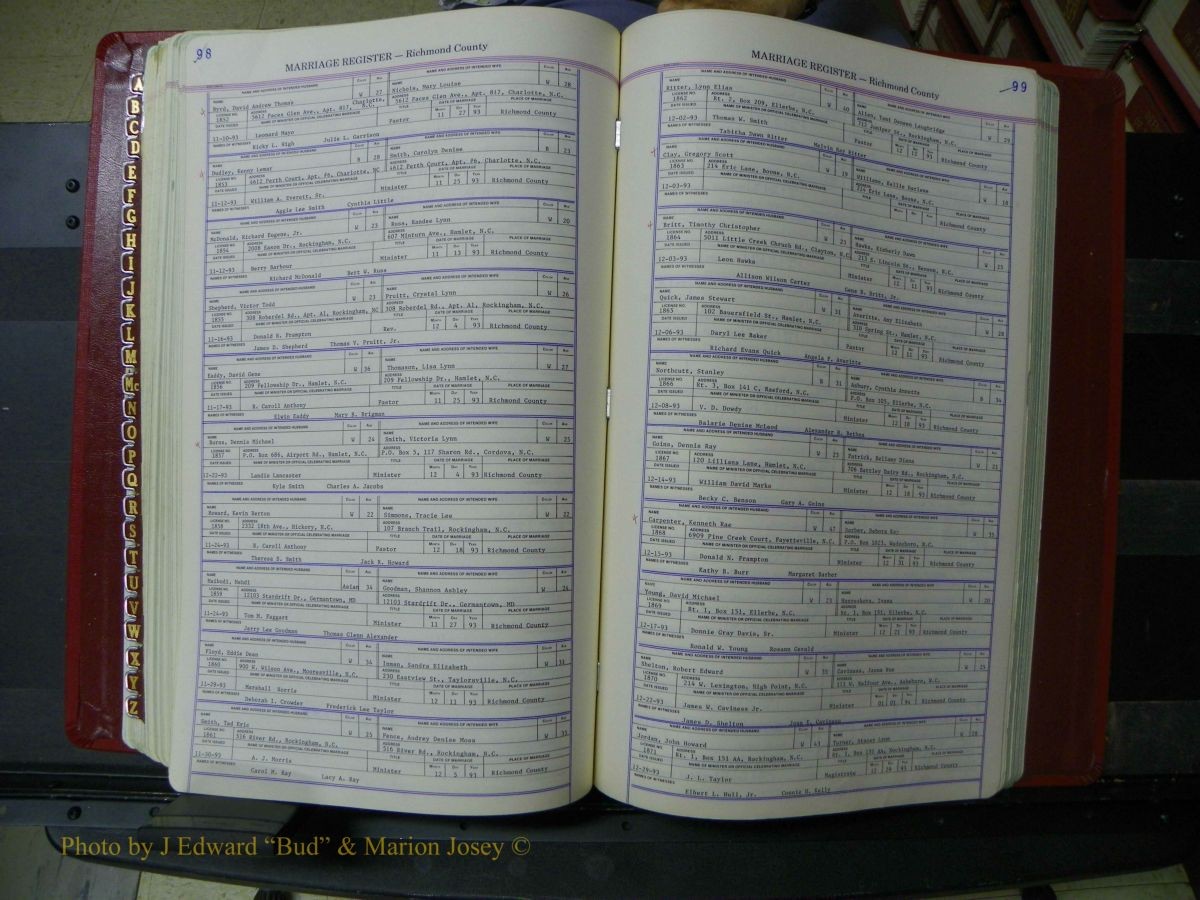 98
MARRIAGE REGISTER — Richmond County
NAME AND ADDRESS OF INTENDED HUSBAND COLOR AGE NAME AND ADDRESS OF INTENDED WIFE COLOR AGE
Byrd, David Andrew Thomas W 27 Nichols, Mary Louise W 28
LICENSE NO. 1852 5612 Faces Glen Ave., Apt. 817, Charlotte, N.C. 5612 Faces Glen Ave., Apt. 817, Charlotte, N.C.
11-10-93 Leonard Mayo Pastor 11 27 93 Richmond County
Ricky L. High Julie L. Garrison
Dudley, Kenny Lemar B 28 Smith, Carolyn Denise B 23
1853 4612 Perth Court, Apt. F6, Charlotte, NC 4612 Perth Court, Apt. F6, Charlotte, N.C.
11-12-93 William A. Everett, Sr. Minister 11 25 93 Richmond County
Aggie Lee Smith Cynthia Little
McDonald, Richard Eugene, Jr. W 23 Russ, Randee Lynn W 20
1854 2008 Eason Dr., Rockingham, N.C. 607 Minturn Ave., Hamlet, N.C.
11-12-93 Berry Barbour Minister 11 13 93 Richmond County
Richard McDonald Bert W. Russ
Shepherd, Victor Todd W 23 Pruitt, Crystal Lynn W 26
1855 308 Roberdel Rd., Apt. A1, Rockingham, NC 308 Roberdel Rd., Apt. A1, Rockingham, N.C.
11-16-93 Donald N. Frampton Rev. 12 4 93 Richmond County
James D. Shepherd Thomas V. Pruitt, Jr.
Eaddy, David Gene W 36 Thomason, Lisa Lynn W 27
1856 209 Fellowship Dr., Hamlet, N.C. 209 Fellowship Dr., Hamlet, N.C.
11-17-93 H. Carroll Anthony Pastor 11 25 93 Richmond County
Elwin Eaddy Mary B. Brigman
Burns, Dennis Michael W 24 Smith, Victoria Lynn W 25
1857 P.O. Box 686, Airport Rd., Hamlet, N.C. P.O. Box 5, 117 Sharon Rd., Cordova, N.C.
11-22-93 Landis Lancaster Minister 12 4 93 Richmond County
Kyle Smith Charles A. Jacobs
Howard, Kevin Berton W 22 Simmons, Tracie Lee W 22
1858 2332 18th Ave., Hickory, N.C. 107 Branch Trail, Rockingham, N.C.
11-24-93 H. Carroll Anthony Pastor 12 18 93 Richmond County
Theresa S. Smith Jack N. Howard
Maibodi, Mehdi Asian 34 Goodman, Shannon Ashley W 24
1859 12103 Stardrift Dr., Germantown, MD 12103 Stardrift Dr., Germantown, MD
11-24-93 Tom M. Faggart Minister 11 27 93 Richmond County
Jerry Lee Goodman Thomas Glenn Alexander
Floyd, Eddie Dean W 34 Inman, Sandra Elizabeth W 33
1860 900 W. Wilson Ave., Mooresville, N.C. 230 Eastview St., Taylorsville, N.C.
11-29-93 Marshall Norris Minister 12 11 93 Richmond County
Deborah I. Crowder Frederick Lee Taylor
Smith, Tad Eric W 25 Pence, Audrey Denise Moss W 35
1861 516 River Rd., Rockingham, N.C. 516 River Rd., Rockingham, N.C.
11-30-93 A. J. Morris Minister 12 5 93 Richmond County
Carol M. Ray Lacy A. Ray
A
B
C
D
E
F
G
H
I
J
K
L
M
Mc
N
O
P
Q
R
S
T
U
V
W
X
Y
Z
99
MARRIAGE REGISTER — Richmond County
NAME AND ADDRESS OF INTENDED HUSBAND COLOR AGE NAME AND ADDRESS OF INTENDED WIFE COLOR AGE
Ritter, Lynn Elias W 40 Allen, Toni Doneen Loughridge W 29
1862 Rt. 2, Box 209, Ellerbe, N.C. Juniper St., Rockingham, N.C.
12-02-93 Thomas W. Smith Pastor 12 12 93 Richmond County
Tabitha Dawn Ritter Melvin Ray Ritter
Clay, Gregory Scott W 19 Williams, Kellie Marlene W 18
1863 214 Eric Lane, Boone, N.C. 214 Eric Lane, Boone, N.C.
12-03-93 Richmond County
Britt, Timothy Christopher W 23 Hawks, Kimberly Dawn W 25
1864 5011 Little Creek Chruch Rd., Clayton, N.C. 213 S. Lincoln St., Benson, N.C.
12-03-93 Leon Hawks Minister 12 11 93 Richmond County
Allison Wilson Carter Gene B. Britt, Jr.
Quick, James Stewart W 31 Averitte, Amy Elizabeth W 28
1865 102 Bauersfield St., Hamlet, N.C. 310 Spring St., Hamlet, N.C.
12-06-93 Daryl Lee Baker Pastor 12 11 93 Richmond County
Richard Evans Quick Angela P. Averitte
Northcutt, Stanley B 31 Asbury, Cynthia Annette B 34
1866 Rt. 3, Box 141 C, Raeford, N.C. P.O. Box 105, Ellerbe, N.C.
12-08-93 V. D. Dowdy Minister 12 18 93 Richmond County
Balarie Denise McLeod Alexander B. Bethea
Goins, Dennis Ray W 23 Patrick, Bethany Diana W 21
1867 120 Lillians Lane, Hamlet, N.C. 706 Battley Dairy Rd., Rockingham, N.C.
12-14-93 William David Marks Minister 12 18 93 Richmond County
Becky C. Benson Gary A. Goins
Carpenter, Kenneth Rae W 47 Barber, Debora Kay W 35
1868 6909 Pine Creek Court, Fayetteville, N.C. P.O. Box 1023, Wadesboro, N.C.
12-15-93 Donald N. Frampton Minister 12 31 93 Richmond County
Kathy B. Burr Margaret Barber
Young, David Michael W 23 Ivana W 20
1869 Rt. 1, Box 151, Ellerbe, N.C. Rt. 1, Box 151, Ellerbe, N.C.
12-17-93 Donnie Gray Davis, Sr. Minister 12 21 93 Richmond County
Ronald W. Young Roseann Gerald
Shelton, Robert Edward W 35 Caviness, Jenna Rae W 25
1870 214 W. Lexington, High Point, N.C. 111 W. Balfour Ave., Asheboro, N.C.
12-22-93 James W. Caviness Jr. Minister 01 01 94 Richmond County
James D. Shelton Joan T. Caviness
Jordan, John Howard W 43 Turner, Stacey Lynn W 28
1871 Rt. 1, Box 151 AA, Rockingham, N.C. Rt. 1, Box 151 AA, Rockingham, N.C.
12-29-93 J. L. Taylor Magistrate 12 29 93 Richmond County
Elbert L. Hull, Jr. Connie H. Kelly
Photo by J Edward “Bud” & Marion Josey ©